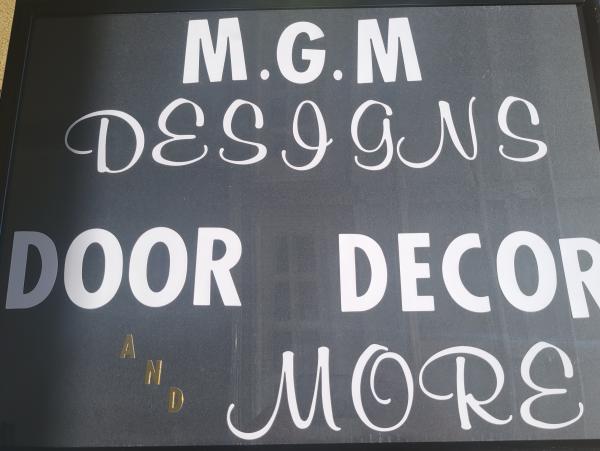 M.G.M
DESIGNS
DOOR DECOR
AND MORE